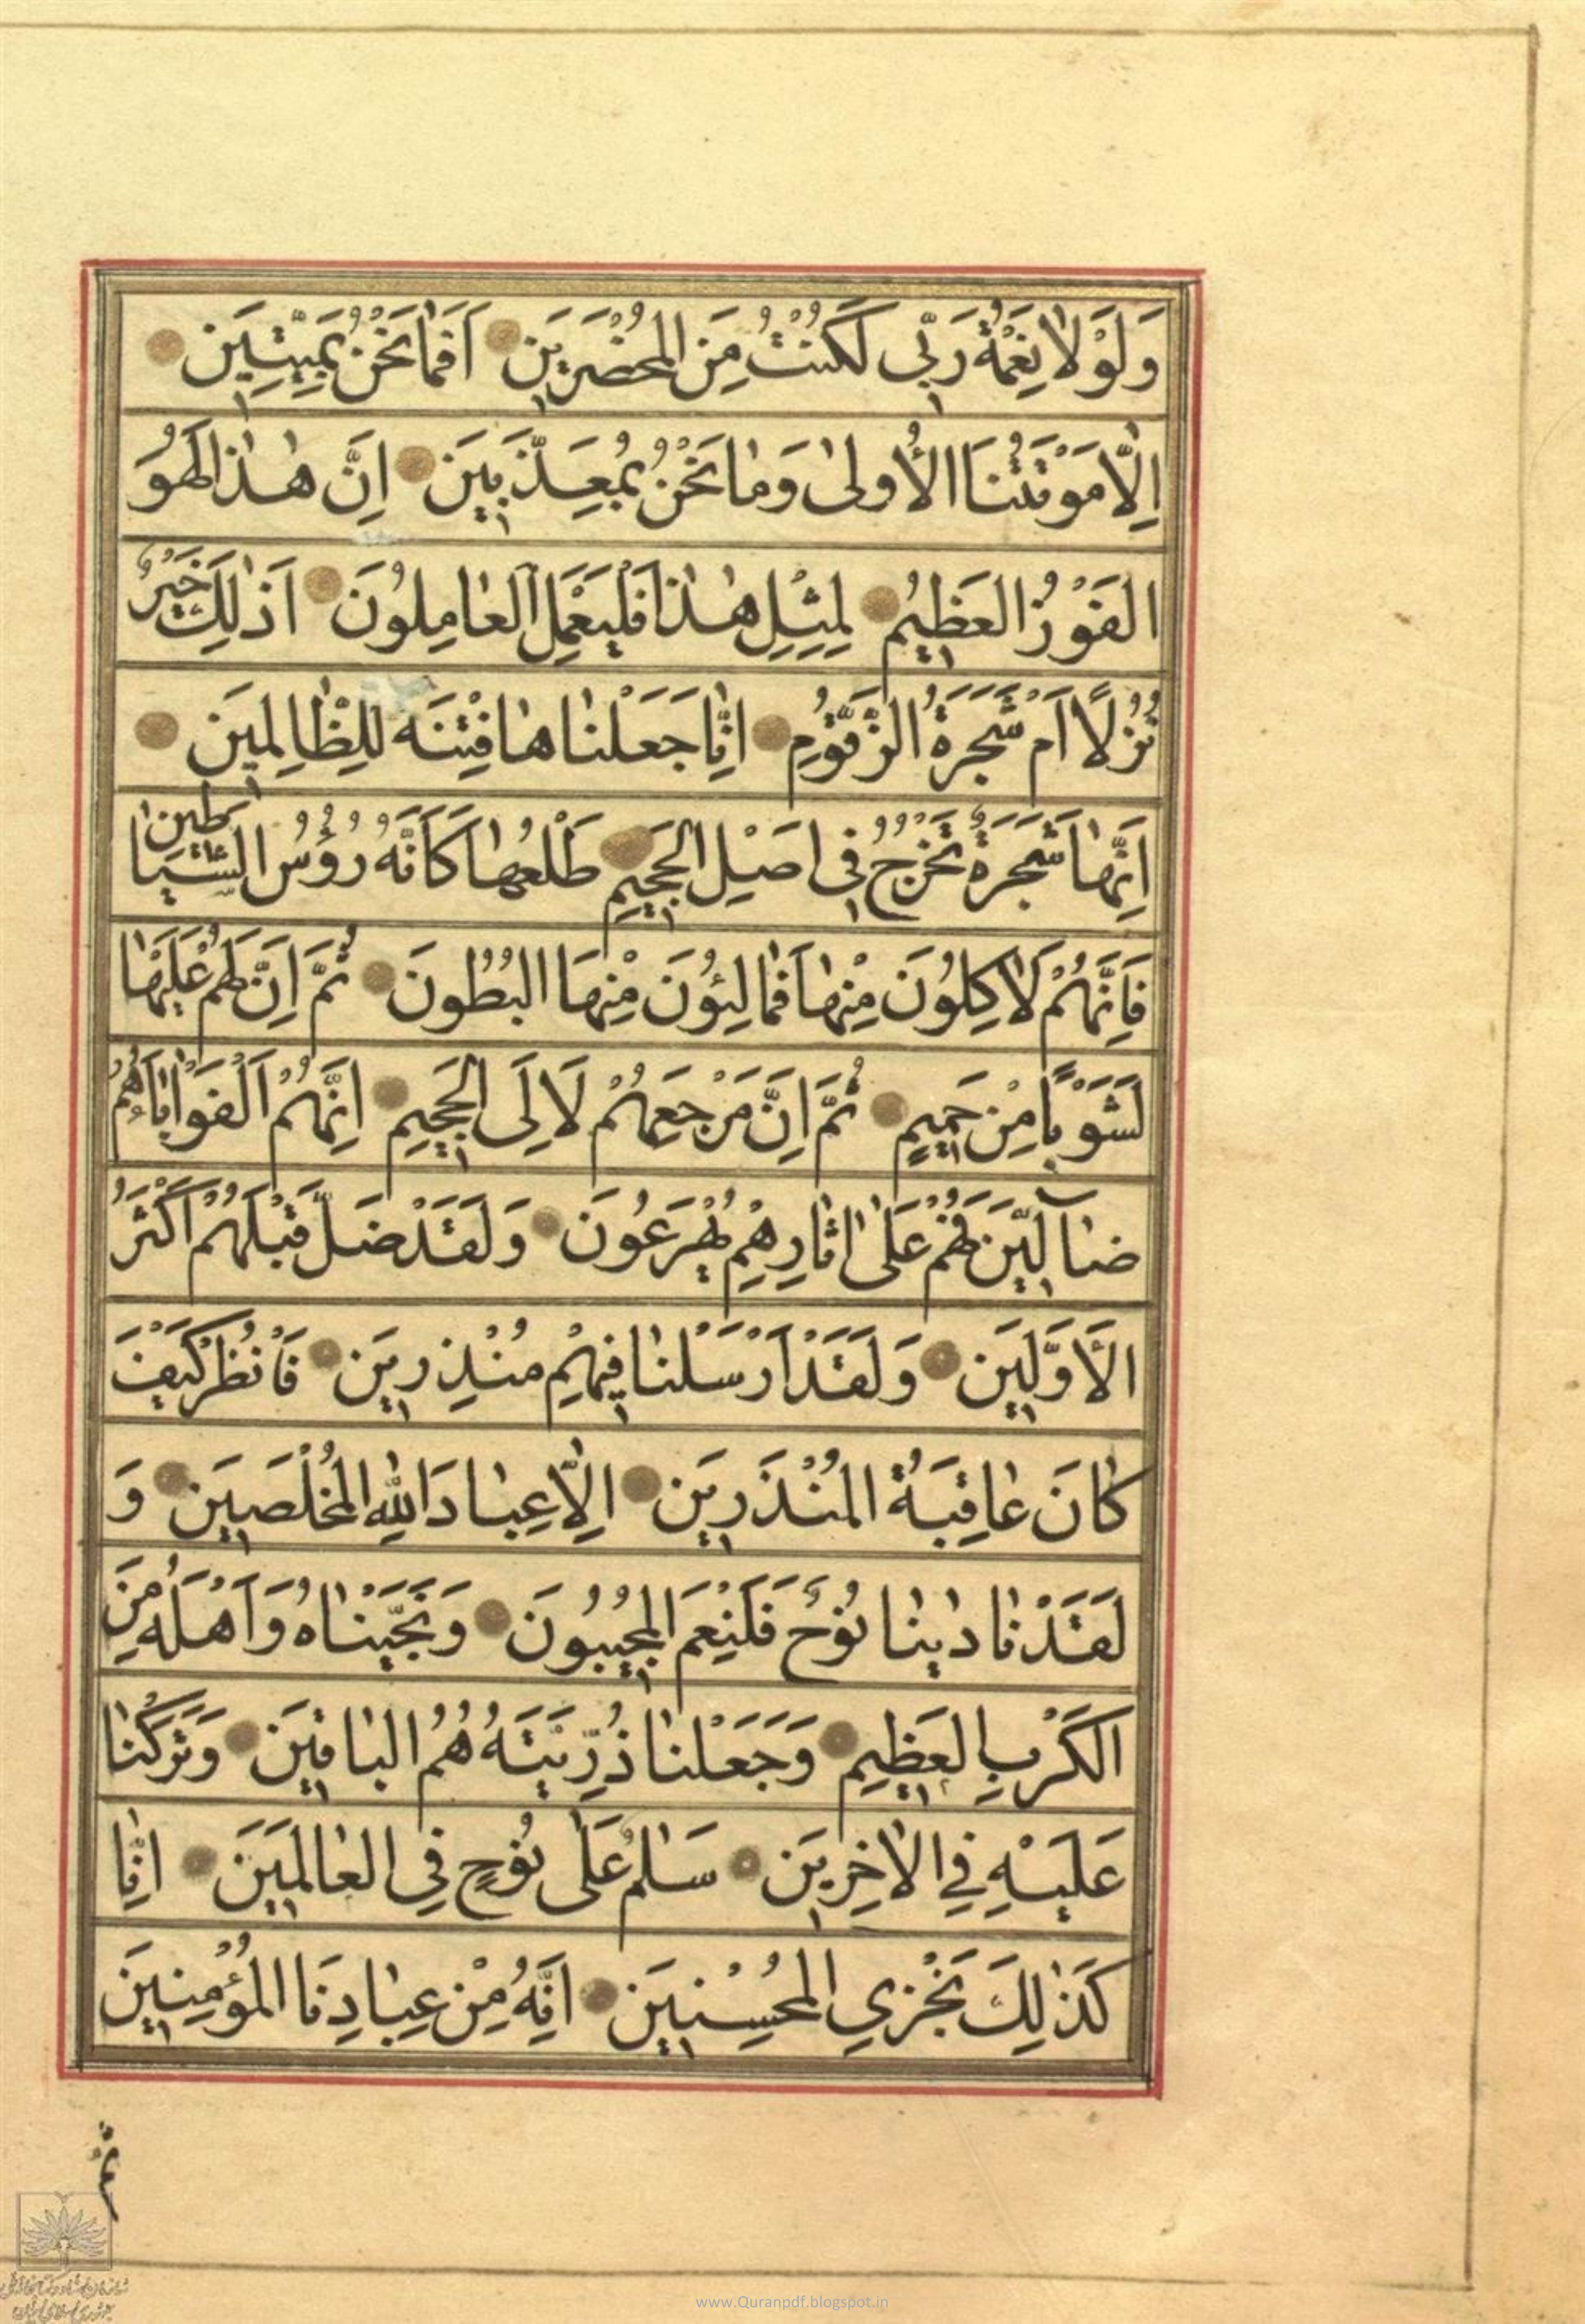 وَلَوْلٰا نِعْمَةُ رَبّی لَكُنْتُ مِنَ المُحْضَرِیٖنَ اَفَمٰا نَحْنُ بِمَیِّتِیٖنَ
اِلّٰا مَوْتَتُنَا الْأُولیٰ وَمٰا نَحْنُ بِمُعَذَّبِیٖنَ اِنَّ هٰذٰا لَهُوَ
الفَوْزُ العَظِیٖمُ لِمِثْلِ هٰذٰا فَلْیَعْمَلِ العٰامِلُونَ اَذٰلِكَ خَیْرٌ
نُزُلًا اَمْ شَجَرَةُ الزَّقّوُمِ اِنّٰا جَعَلْنٰاهٰا فِتْنَه لِلظّٰالِمیٖنَ
اِنَّهٰا شَجَرَةٌ تَخْرُجُ فیٖ اَصْلِ الجَحیٖمِ طَلْعُهٰا كَاَنَّهُ رُؤُسُ الشَّیٰاطیٖن
فَاِنَّهُمْ لَاٰكِلُونَ مِنْهٰا فَمٰالِئُونَ مِنْهَا البُطُونَ ثُمَّ اِنَّ لَهُمْ عَلَیْهٰا
لَشَوْبًا مِنْ حَمیٖمٍ ثُمَّ اِنَّ مَرْجَعِهُمْ لَاِلَی الجَحیٖمِ اِنَّهُمْ اَلْفَوْا اٰبٰاءَهُمْ
ضٰآلّیٖنَ فَهُمْ عَلیٰ اٰثٰارِهِمْ یُهْرَعُونَ وَلَقَدْ ضَلَّ قَبْلَهُمْ اَكْثَرُ
الْأَوَّلیٖنَ وَلَقَدْ اَرْسَلْنٰا فیٖهِمْ مُنْذِریٖنَ فَانْظُرْ كَیْفَ
كٰانَ عٰاقِبَةُ المُنْذَریٖنَ اِلّٰا عِبٰادَ اللهِ المُخْلَصیٖنَ وَ
لَقَدْ نٰادٰینٰا نُوحٌ فَلَنِعْمَ المُجیٖبُونَ وَنَجَّیْنٰاهُ وَاَهْلَهُ مِنَ
الكَرْبِ العَظیٖمِ وَجَعَلْنٰا ذُرِّیَّتَهُ هُمُ البٰاقیٖنَ وَتَرَكْنٰا
عَلَیْهِ فِی الْاٰخِریٖنَ سَلٰمٌ عَلیٰ نُوحٍ فِی العٰالَمیٖنَ اِنّٰا
كَذٰلِكَ نَجْزِی المُحْسِنیٖنَ اِنَّهُ مِنْ عِبٰادِنَا المُؤْمِنیٖنَ
ثم
www.Quranpdf.blogspot.in